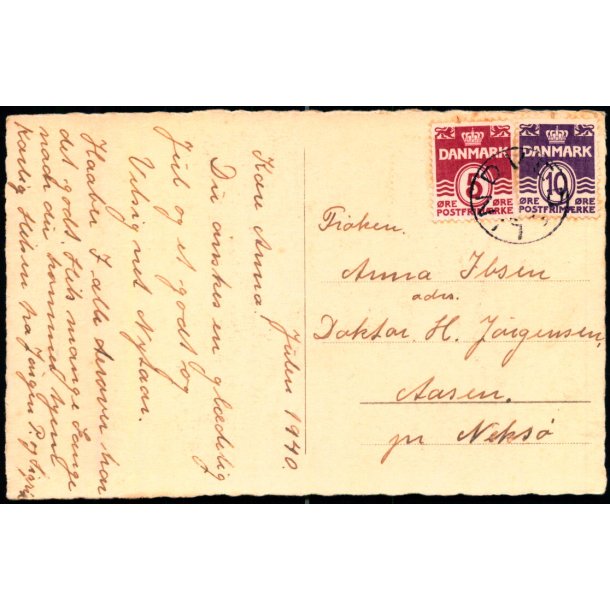 Julen 1940.
Kære Anna.
Du ønskes en glædelig
Jul og et godt og
Velsignet Nytaar.
Haaber I alle derovre har
det godt. Hils mange Gange
naar du kommer hjem
Kærlig Hilsen fra Jørgen P. og
DANMARK
5
ØRE ØRE
POSTFRIMÆRKE
DANMARK
10
ØRE ØRE
POSTFRIMÆRKE
Frøken.
Anna Ibsen
adrs.
Doktor H. Jørgensen,
Aasen.
pr Neksø